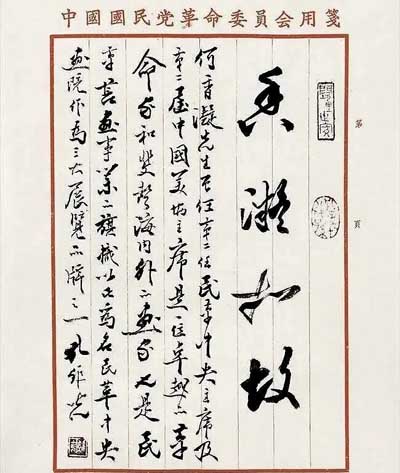 中國國民党革命委員会用箋
第 頁
香凝如故
何香凝先生曾任第二任民革中央主席及
第二屆中國美協主席是一位卓越的革
命家和斐誉海内外的画家也是民
革書画事業之旗幟以此为名民革中央
画院作为三大展覽品牌之一 孔维克